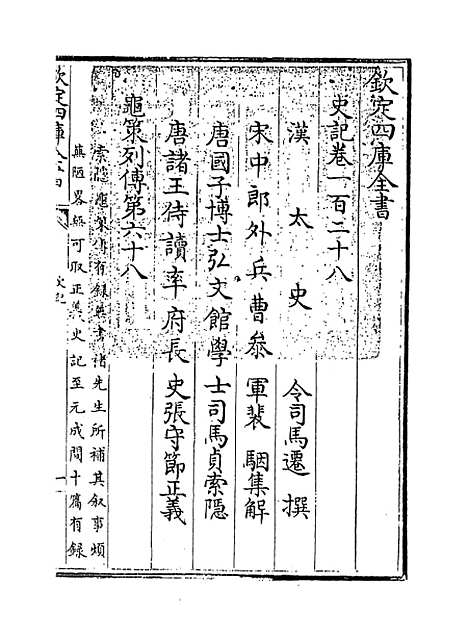 欽定四庫全書
史記卷一百二十八
漢太史令司馬遷撰
宋中郎外兵曹叅軍裴駰集解
唐國子博士弘文館學士司馬貞索隱
唐諸王侍讀率府長史張守節正義
龜策列傳第六十八
索隱龜策傳有録無書褚先生所補其叙事煩
蕪陋畧無可取正義史記至元成間十篇有録
欽定四庫全書
史記
一